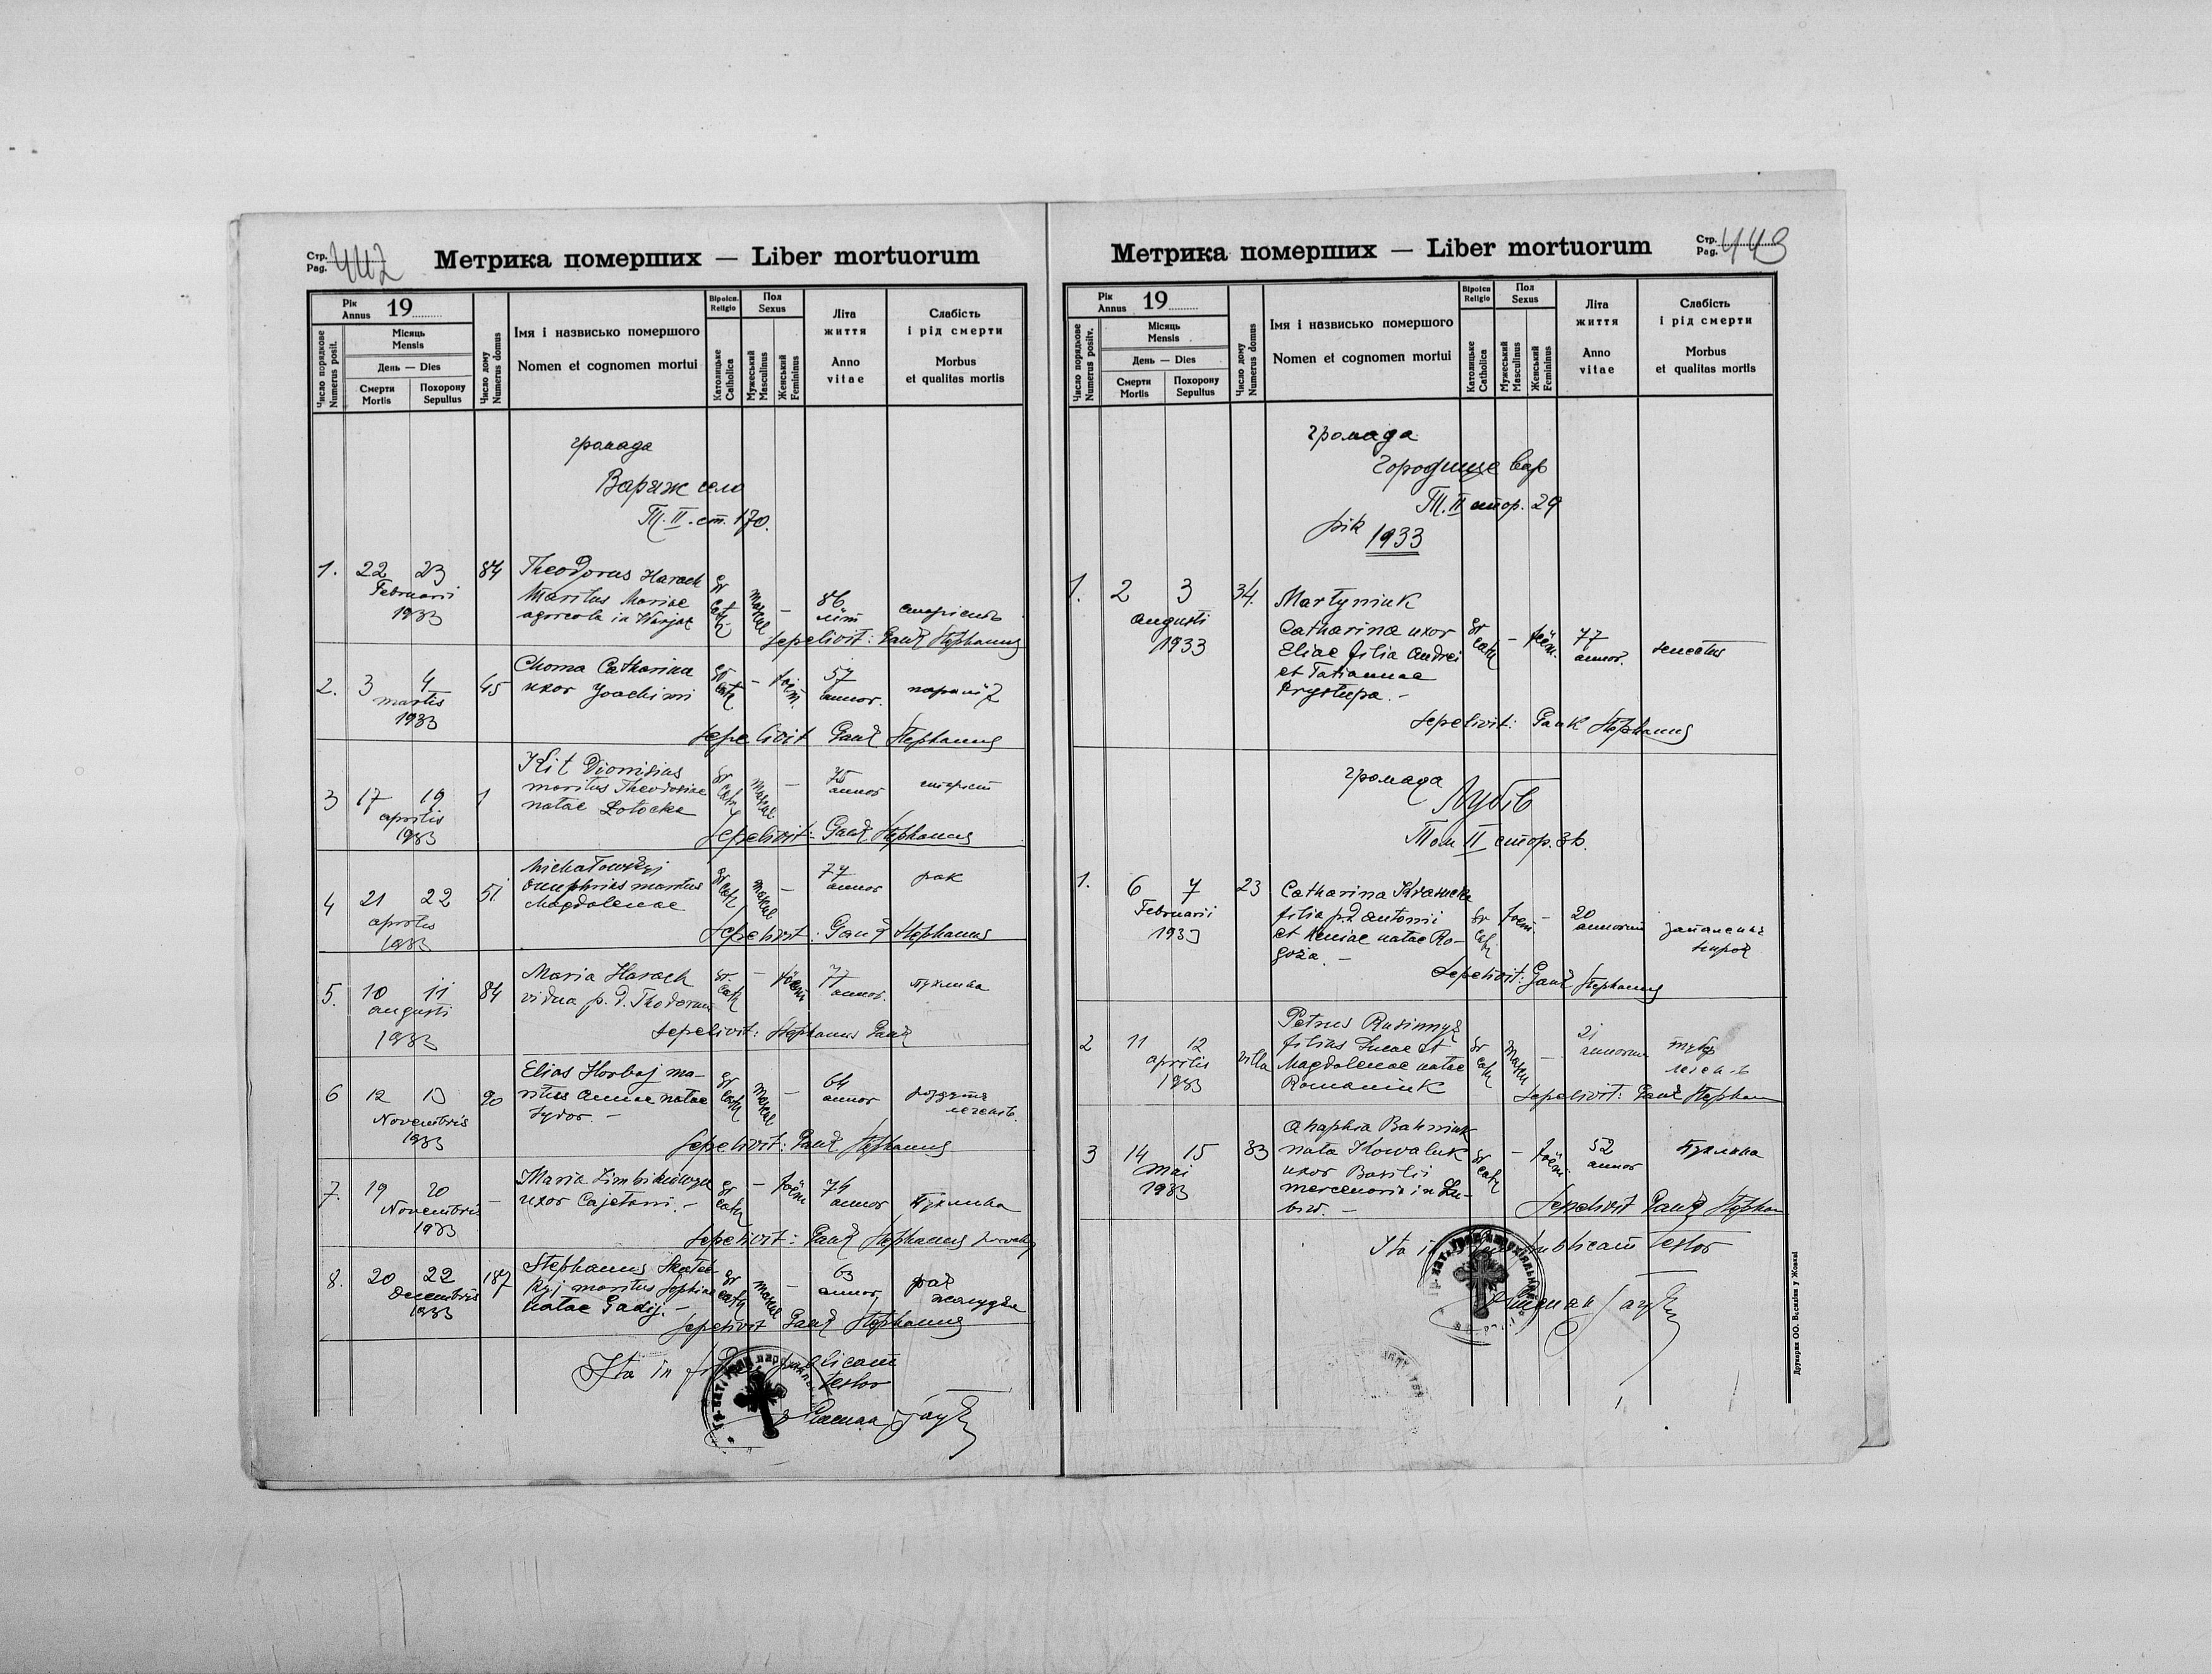 Стр.
Pag. 442
Метрика померших — Liber mortuorum
Рік
Annus 19
Місяць
Mensis
День — Dies
Смерти
Mortis
Похорону
Sepultus
Число порядкове
Numerus posit.
Число дому
Numerus domus
Імя і назвисько помершого
Nomen et cognomen mortui
Віроісп.
Religio
Католицьке
Catholica
Пол
Sexus
Мужеський
Masculinus
Женський
Femininus
Літа
життя
Anno
vitae
Слабість
і рід смерти
Morbus
et qualitas mortis
громада
Варяж село
Т. II. ст. 170.
1. 22 23 84 Theodorus Harach gr 86
Februarii maritus Mariae cath mascul — літ старість
1933 agricola in
Sepelivit: Gauk Stephanus
2. 3 4 45 Choma Catharina gr cath — foem. 57
martis uxor Joachimi annor.
1933
Sepelivit Gauk Stephanus
3 17 19 1 Kit Dionisius gr cath mascul — 75
aprilis maritus Theodosiae annor
1933 natae Łotocka
Sepelivit: Gauk Stephanus
4 21 22 51 Michałowskyj gr cath mascul — 77 рак
aprilis Onuphrius maritus annor
1933 Magdalenae
Sepelivit: Gauk Stephanus
5. 10 11 84 Maria Harach gr. cath — foem 77 пухлина
augusti vidua p. d. Theodorum annor.
1933
Sepelivit: Stephanus Gauk
6 12 13 90 Elias Horbaj ma- gr cath mascul — 64
Novembris ritus Annae natae annor
1933 Sydor. —
Sepelivit: Gauk Stephanus
7. 19 20 — Maria gr cath — foem 74
Novembris uxor Cajetani. — annor Пухлина
1933
Sepelivit: Gauk Stephanus
8. 20 22 187 Stephanus gr cath mascul — 63 рак
Decembris kyj maritus Sophiae annor, жолудка
1933 natae Gadij. —
Sepelivit Gauk Stephanus
Ita in fidem publicam
testor
Стр.
Pag. 443
Метрика померших — Liber mortuorum
Рік
Annus 19
Місяць
Mensis
День — Dies
Смерти
Mortis
Похорону
Sepultus
Число порядкове
Numerus positv.
Число дому
Numerus domus
Імя і назвисько помершого
Nomen et cognomen mortui
Віроісп
Religio
Католицьке
Catholica
Пол
Sexus
Мужеський
Masculinus
Женський
Femininus
Літа
життя
Anno
vitae
Слабість
і рід смерти
Morbus
et qualitas mortis
громада
Городище вар
Т. II стор. 29
рік
1933
1. 2 3 34. Martyniuk
augusti Catharina uxor gr cath — foem. 77 senectus
1933 Eliae filia Andrei annor.
et Tatiannae
Krystupa. —
Sepelivit: Gauk Stephanus
громада
Лубів
Том II стор. 36.
1. 6 7 23 Catharina
Februarii filia p.d. Antonii gr cath foem. — 20
1933 et Xeniae natae Ro- annorum запалення
goża. — нирок
Sepelivit: Gauk Stephanus
2 11 12 villa Petrus
aprilis filius Lucae et gr cath mascul — 21 annorum тубер
1933 Magdalenae natae
Romaniuk
Sepelivit: Gauk Stephan
3 14 15 83 Anaphia Bahniuk
Mai nata Kowaluk gr cath — foem 52 annor Пухлина
1933 uxor Basilii
mercenarii in Lu-
biw. —
Sepelivit Gauk Stephan
Ita in fidem publicam testor
Друкарня ОО. Василіян у Жовкві